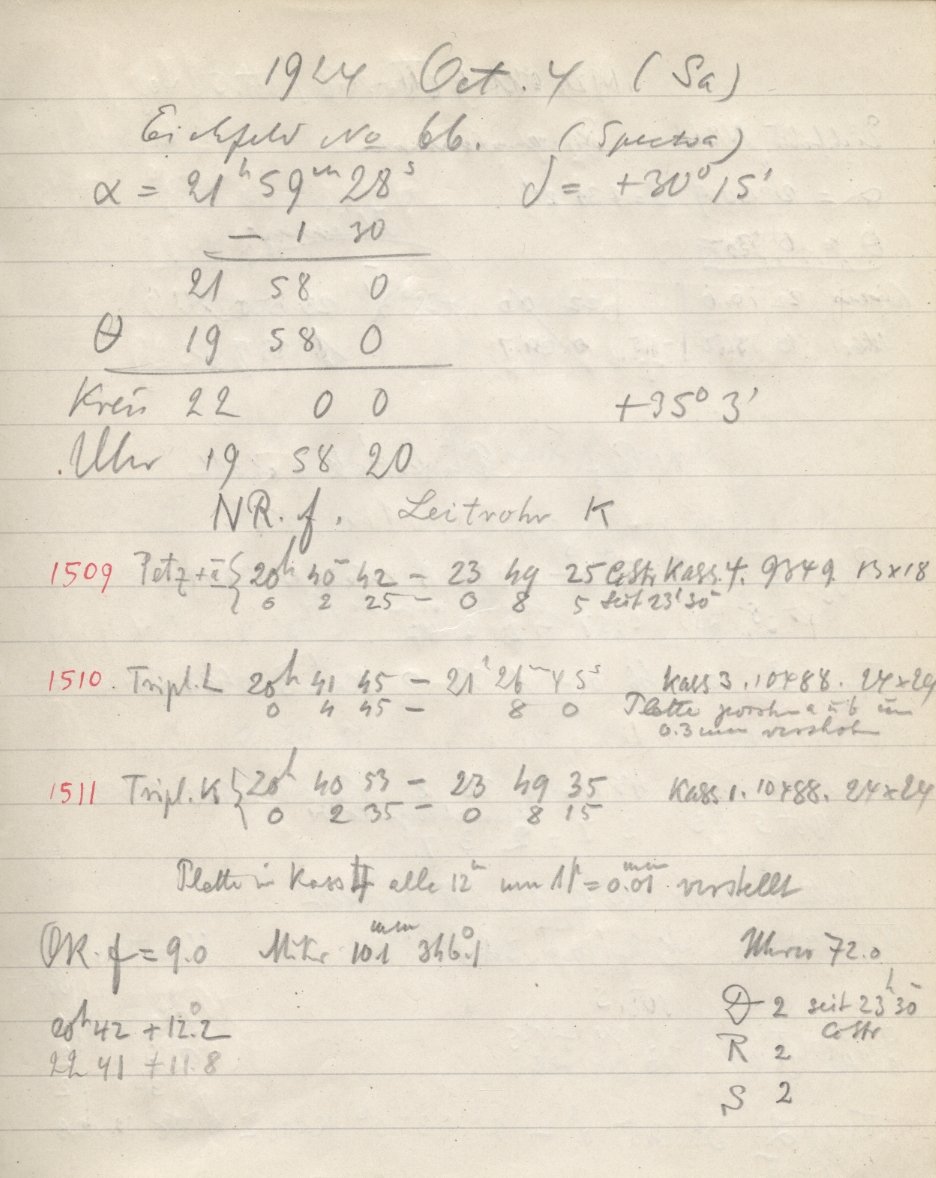 1924 Oct. 4 (Sa)
Eichfeld No 66. (Spectra)
α = 21h 59m 28s δ = +30° 15'
— 1 30
21 58 0
θ 19 58 0
Kreis 22 0 0 +35° 3'
Uhr 19 58 20
NR. f. Leitrohr K
1509 Petz + { 20h 40 42 — 23 49 25 Kass. 4. 9349. 13x18
0 2 25 — 0 8 5 seit 23h 30m
1510. Tripl. L 20h 41 45 — 21h 26m 45s Kass 3. 10488. 24x24
0 4 45 — 8 0 Platte
0.3 mm
1511 Tripl. K { 20h 40 53 — 23 49 35 Kass 1. 10488. 24x24
0 2 35 — 0 8 15
Platte in Kass 4 alle 12m um 1p = 0.01mm verstellt
OK. f = 9.0 Mikr 101mm 346.1° 72.0
20h 42 +12.°2 D 2 seit 23h 30m
22 41 +11.8 R 2
S 2